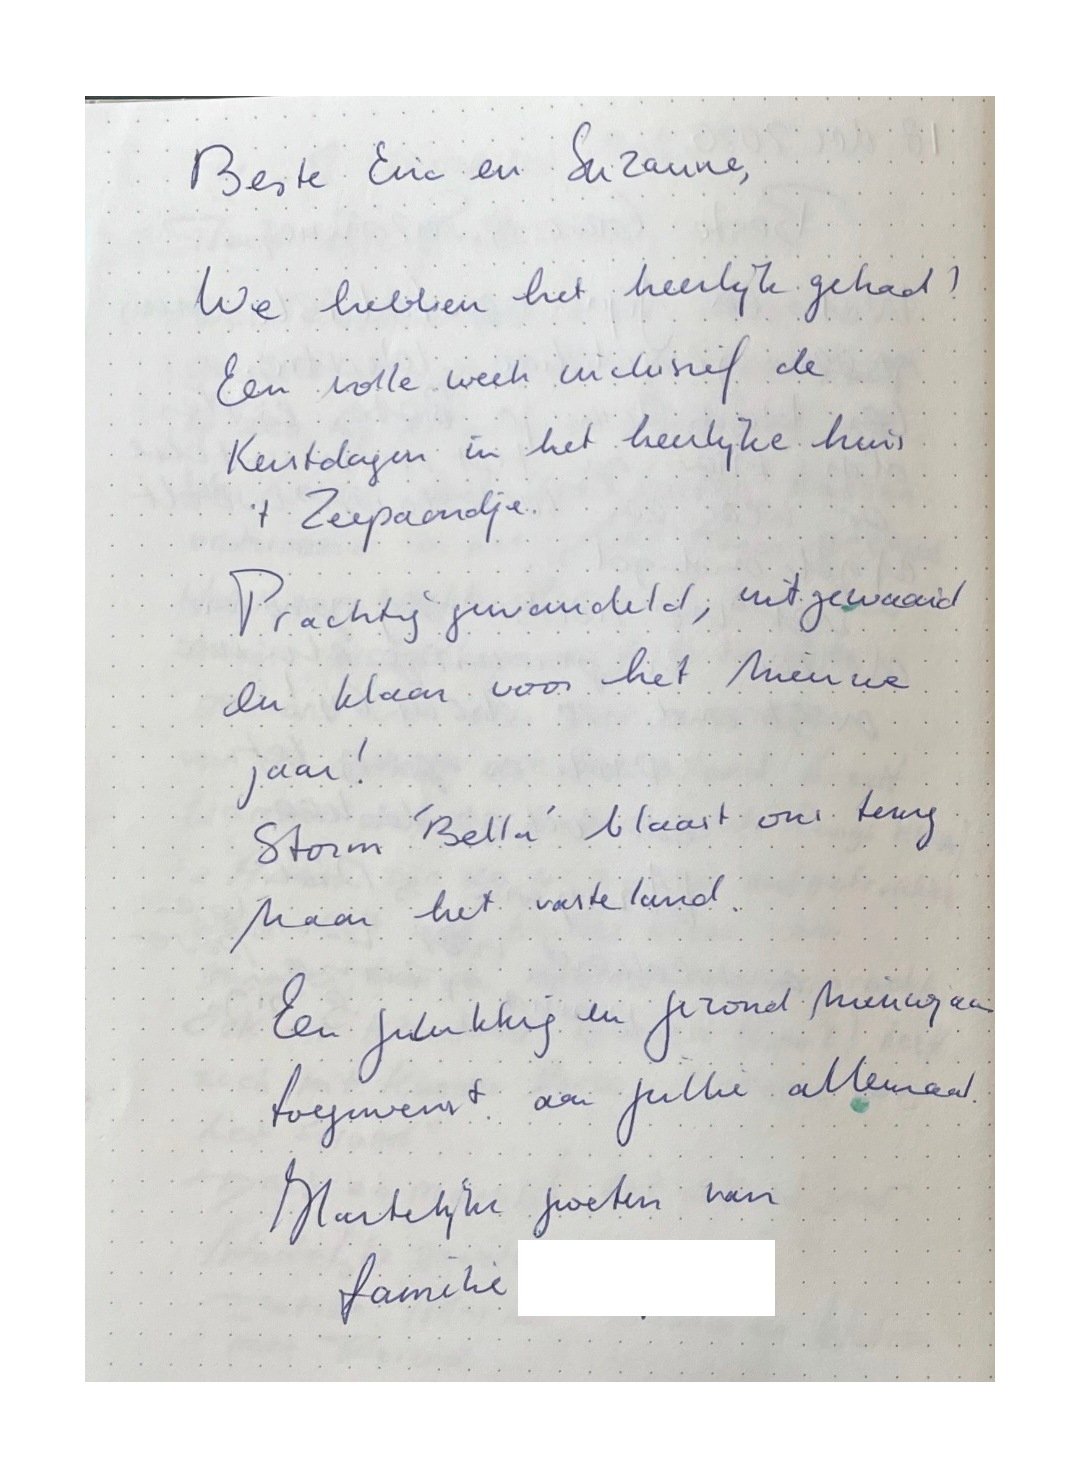 Beste Eric en Suzanne,
We hebben het heerlijk gehad!
Een volle week inclusief de
Kerstdagen in het heerlijke huis
't Zeepaardje.
Prachtig gewandeld, uitgewaaid
en klaar voor het nieuwe
jaar!
Storm 'Bella' blaast ons terug
naar het vasteland.
Een gelukkig en gezond nieuwjaar
toegewenst aan jullie allemaal.
Hartelijke groeten van
familie